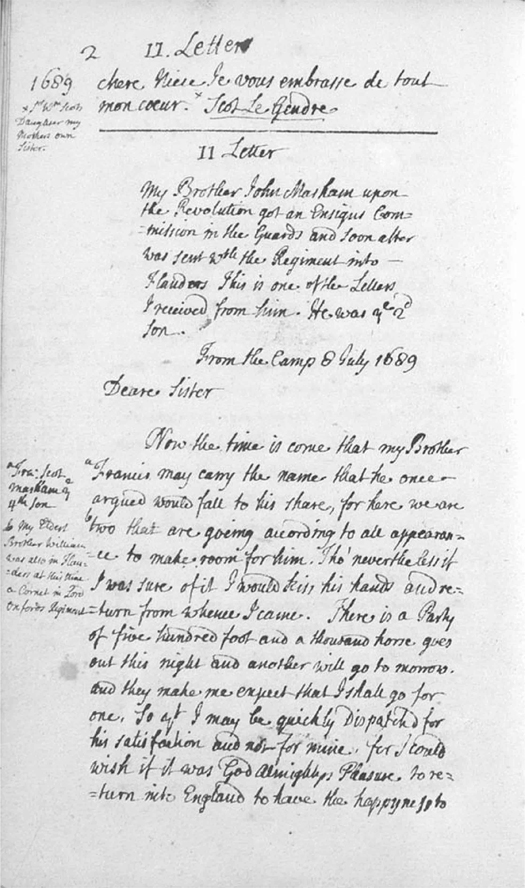 2 II. Letter
1689
chere Niese Je vous embrasse de tout
mon coeur. x Scot Le Gendre
x Sr. Wm. Scots
Daughter my
Mothers own
Sister.
II Letter
My Brother John Masham upon
the Revolution got an Ensigns Com=
=mission in the Guards and soon after
was sent wth the Regiment into
Flanders This is one of the Letters
I received from him. He was ye 2d
Son.
From the Camp 8 July 1689
Deare Sister
Now the time is come that my Brother
a Francis may carry the name that he once
argued would fall to his share, for here we are
b two that are going according to all appearan=
=ce to make room for him. Tho' nevertheless if
I was sure of it I would kiss his hands and re=
=turn from whence I came. There is a Party
of five hundred foot and a thousand horse goes
out this night and another will go to morrow.
and they make me expect that I shall go for
one. So yt I may be quickly Dispatch'd for
his satisfaction and not for mine. for I could
wish if it was God Almightys Pleasure to re=
=turn into England to have the happyness to
a Fra: Scot
Masham ye
4th Son
b My Eldest
Brother William
was also in Flan=
=ders at this time
a Cornet in Lord
Oxfords Regiment